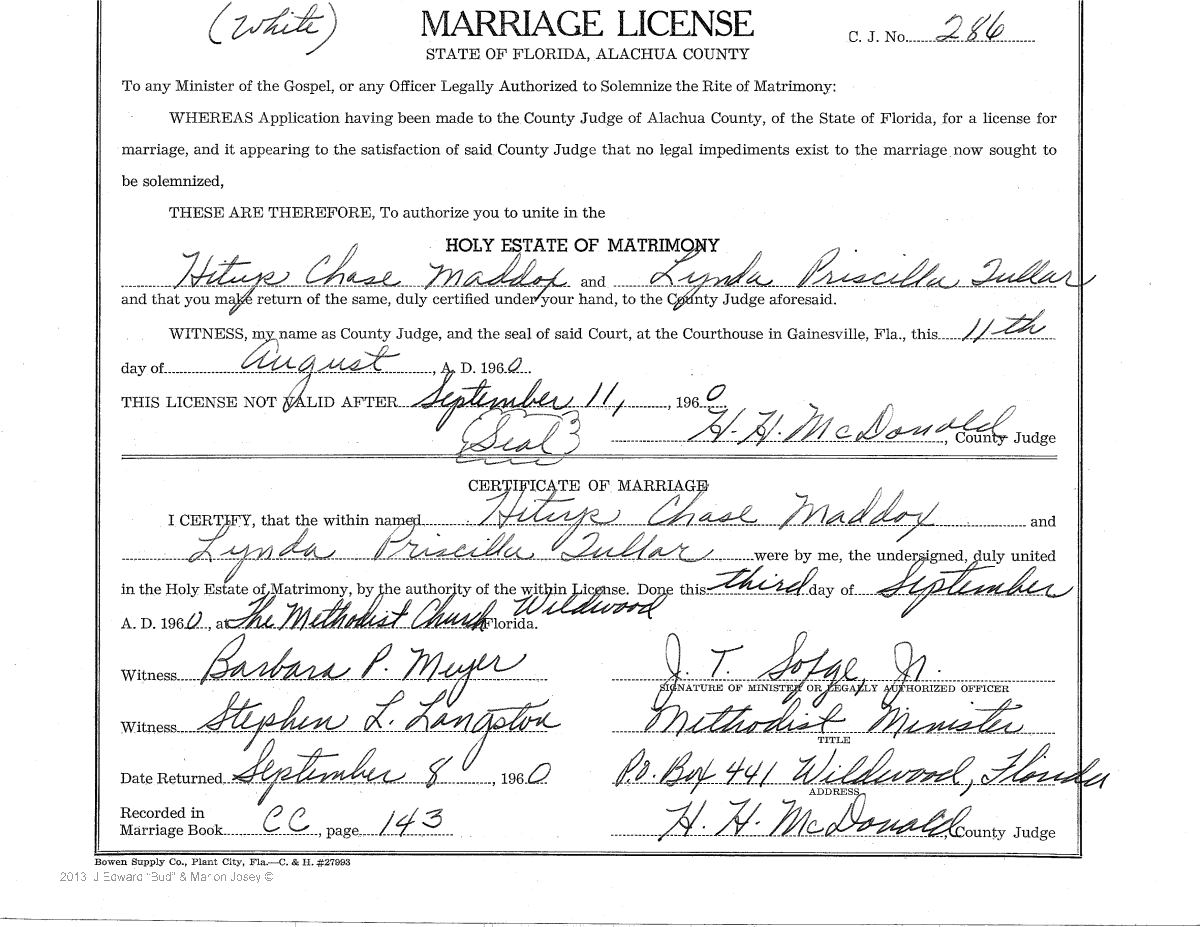 (White)
MARRIAGE LICENSE
C. J. No. 286
STATE OF FLORIDA, ALACHUA COUNTY
To any Minister of the Gospel, or any Officer Legally Authorized to Solemnize the Rite of Matrimony:
WHEREAS Application having been made to the County Judge of Alachua County, of the State of Florida, for a license for
marriage, and it appearing to the satisfaction of said County Judge that no legal impediments exist to the marriage now sought to
be solemnized,
THESE ARE THEREFORE, To authorize you to unite in the
HOLY ESTATE OF MATRIMONY
Chase Maddox and Lynda Priscilla Tullar
and that you make return of the same, duly certified under your hand, to the County Judge aforesaid.
WITNESS, my name as County Judge, and the seal of said Court, at the Courthouse in Gainesville, Fla., this 11th
day of August, A. D. 1960.
THIS LICENSE NOT VALID AFTER September 11, , 1960
(Seal) H. H. McDonald, County Judge
CERTIFICATE OF MARRIAGE
I CERTIFY, that the within named Chase Maddox and
Lynda Priscilla Tullar were by me, the undersigned, duly united
in the Holy Estate of Matrimony, by the authority of the within License. Done this third day of September
A. D. 1960, at The Methodist Church Wildwood Florida.
Witness Barbara P. Meyer J. T. Sofge, Jr.
SIGNATURE OF MINISTER OR LEGALLY AUTHORIZED OFFICER
Witness Stephen L. Langston Methodist Minister
TITLE
Date Returned September 8, 1960 P.O. Box 441 Wildwood, Florida
ADDRESS
Recorded in
Marriage Book CC, page 143 H. H. McDonald, County Judge
Bowen Supply Co., Plant City, Fla.—C. & H. #27993
2013 J Edward "Bud" & Marion Josey ©